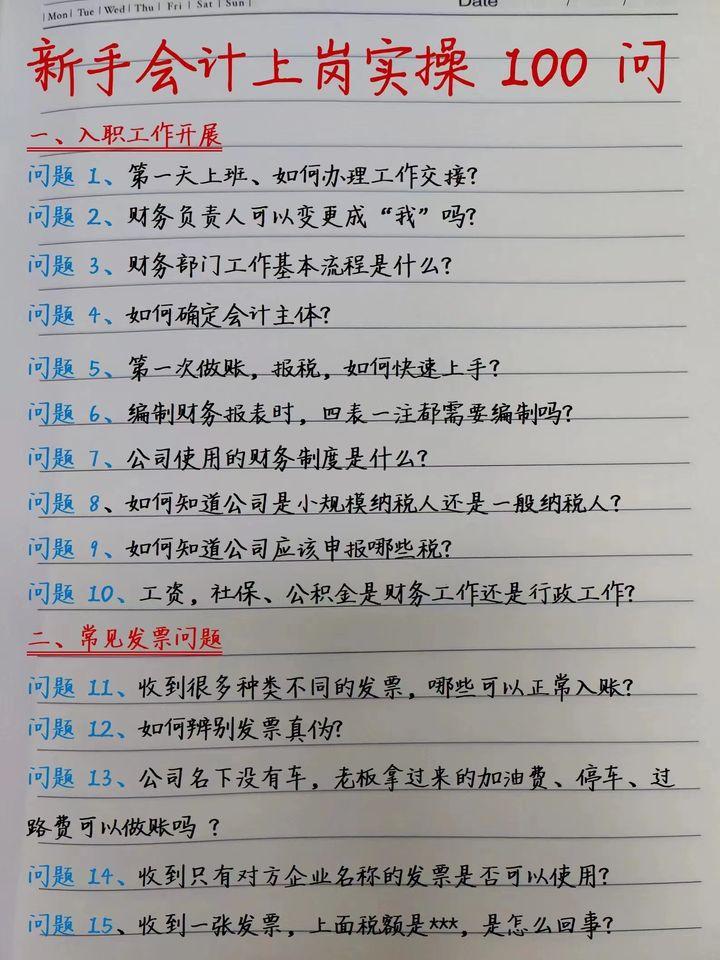 |Mon| Tue |Wed| Thu | Fri | Sat | Sun|
Date / /
新手会计上岗实操 100 问
一、入职工作开展
问题 1、第一天上班、如何办理工作交接？
问题 2、财务负责人可以变更成“我”吗？
问题 3、财务部门工作基本流程是什么？
问题 4、如何确定会计主体？
问题 5、第一次做账，报税，如何快速上手？
问题 6、编制财务报表时，四表一注都需要编制吗？
问题 7、公司使用的财务制度是什么？
问题 8、如何知道公司是小规模纳税人还是一般纳税人？
问题 9、如何知道公司应该申报哪些税？
问题 10、工资，社保、公积金是财务工作还是行政工作？
二、常见发票问题
问题 11、收到很多种类不同的发票，哪些可以正常入账？
问题 12、如何辨别发票真伪？
问题 13、公司名下没有车，老板拿过来的加油费、停车、过
路费可以做账吗 ？
问题 14、收到只有对方企业名称的发票是否可以使用？
问题 15、收到一张发票，上面税额是***，是怎么回事？